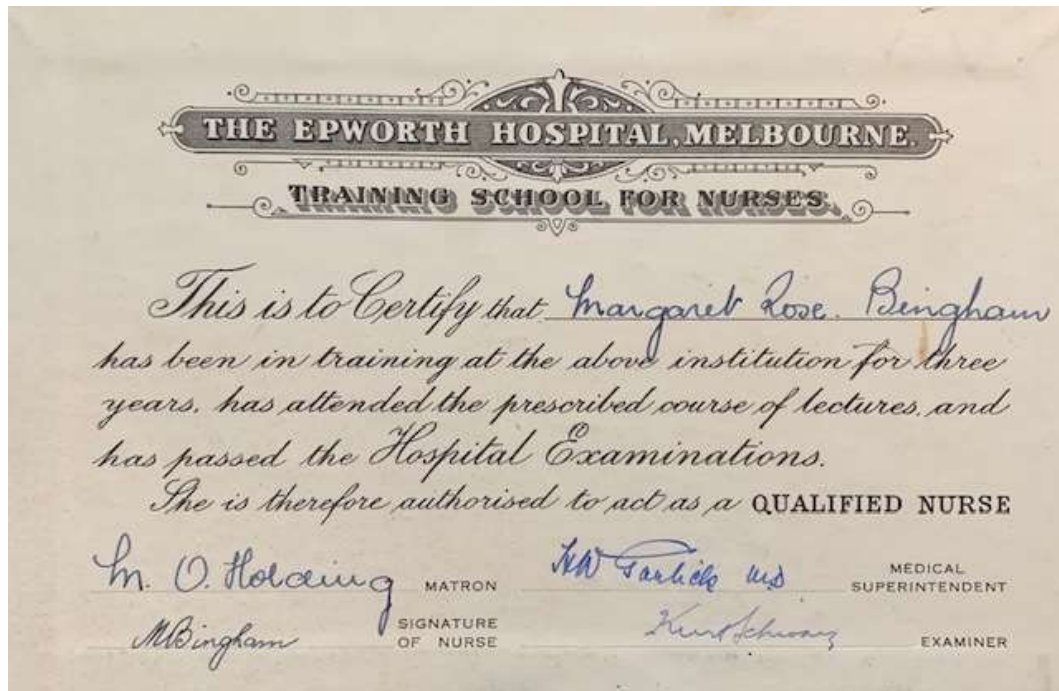 THE EPWORTH HOSPITAL, MELBOURNE.
TRAINING SCHOOL FOR NURSES.
This is to Certify that Margaret Rose. Bingham
has been in training at the above institution for three
years, has attended the prescribed course of lectures, and
has passed the Hospital Examinations.
She is therefore authorised to act as a QUALIFIED NURSE
M. O. Holding MATRON
HW Garlick MD MEDICAL SUPERINTENDENT
MBingham SIGNATURE OF NURSE
Kurt Schwarz EXAMINER